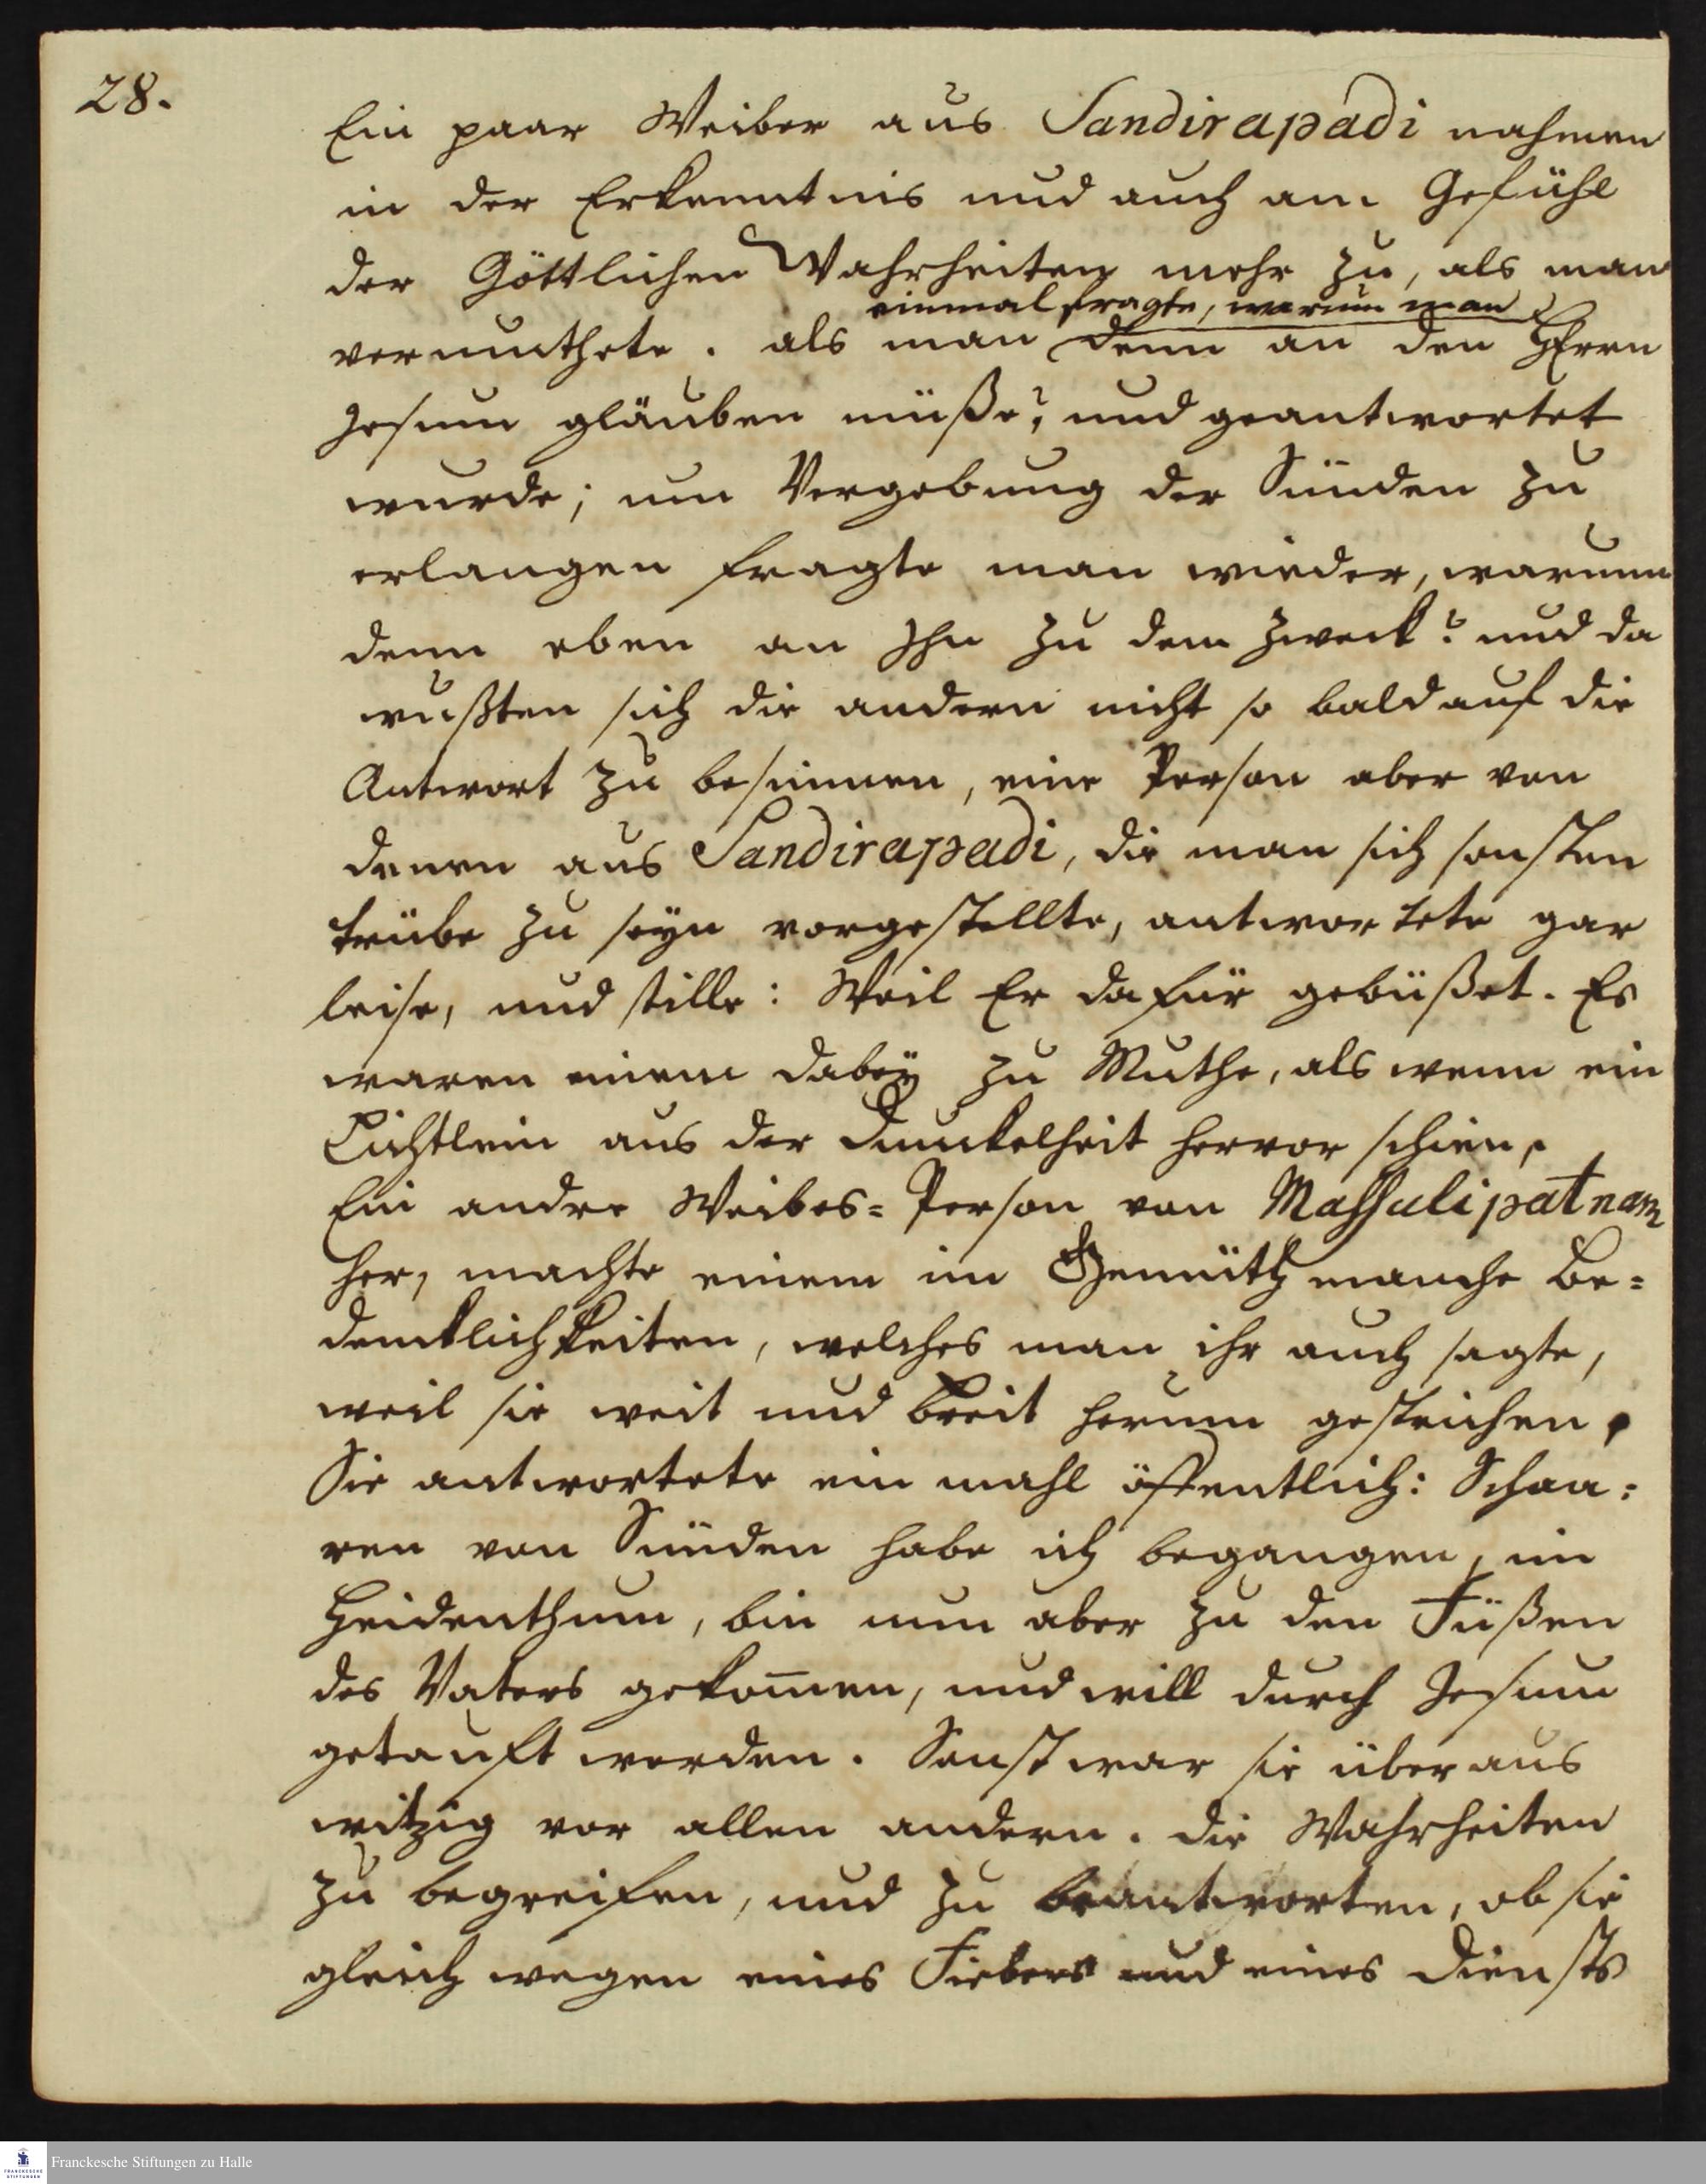 28.
Ein paar Weiber aus Sandirapadi nahmen
in der Erkenntnis und auch am Gefühl
der Göttlichen Wahrheiten mehr zu, als man
einmal fragte, warum man
vermuthete. als man denn an den HErrn
Jesum gläuben müße? und geantwortet
wurde; um Vergebung der Sünden zu
erlangen fragte man wieder, warum
denn eben an Ihn zu dem Zweck? und da
wußten sich die andern nicht so bald auf die
Antwort zu besinnen, eine Person aber von
denen aus Sandirapadi, die man sich sonsten
trübe zu seyn vorgestellte, antwortete gar
leise, und stille: Weil Er dafür gebüßet. Es
waren einem dabey zu Muthe, als wenn ein
Lichtlein aus der Dunckelheit hervor schien.
Ein andre Weibes=Person von Massulipatnam
her, machte einem im Gemüth manche Be=
dencklichkeiten, welches man ihr auch sagte,
weil sie weit und breit herum gestrichen.
Sie antwortete ein mahl öffentlich: Schaa=
ren von Sünden habe ich begangen, im
Heidenthum, bin nun aber zu den Füßen
des Vaters gekom̅en, und will durch Jesum
getauft werden. Sonst war sie überaus
witzig vor allen andern. die Wahrheiten
zu begreifen, und zu beantworten, ob sie
gleich wegen eines Fiebers und eines Diensts
FRANCKESCHE STIFTUNGEN
Franckesche Stiftungen zu Halle